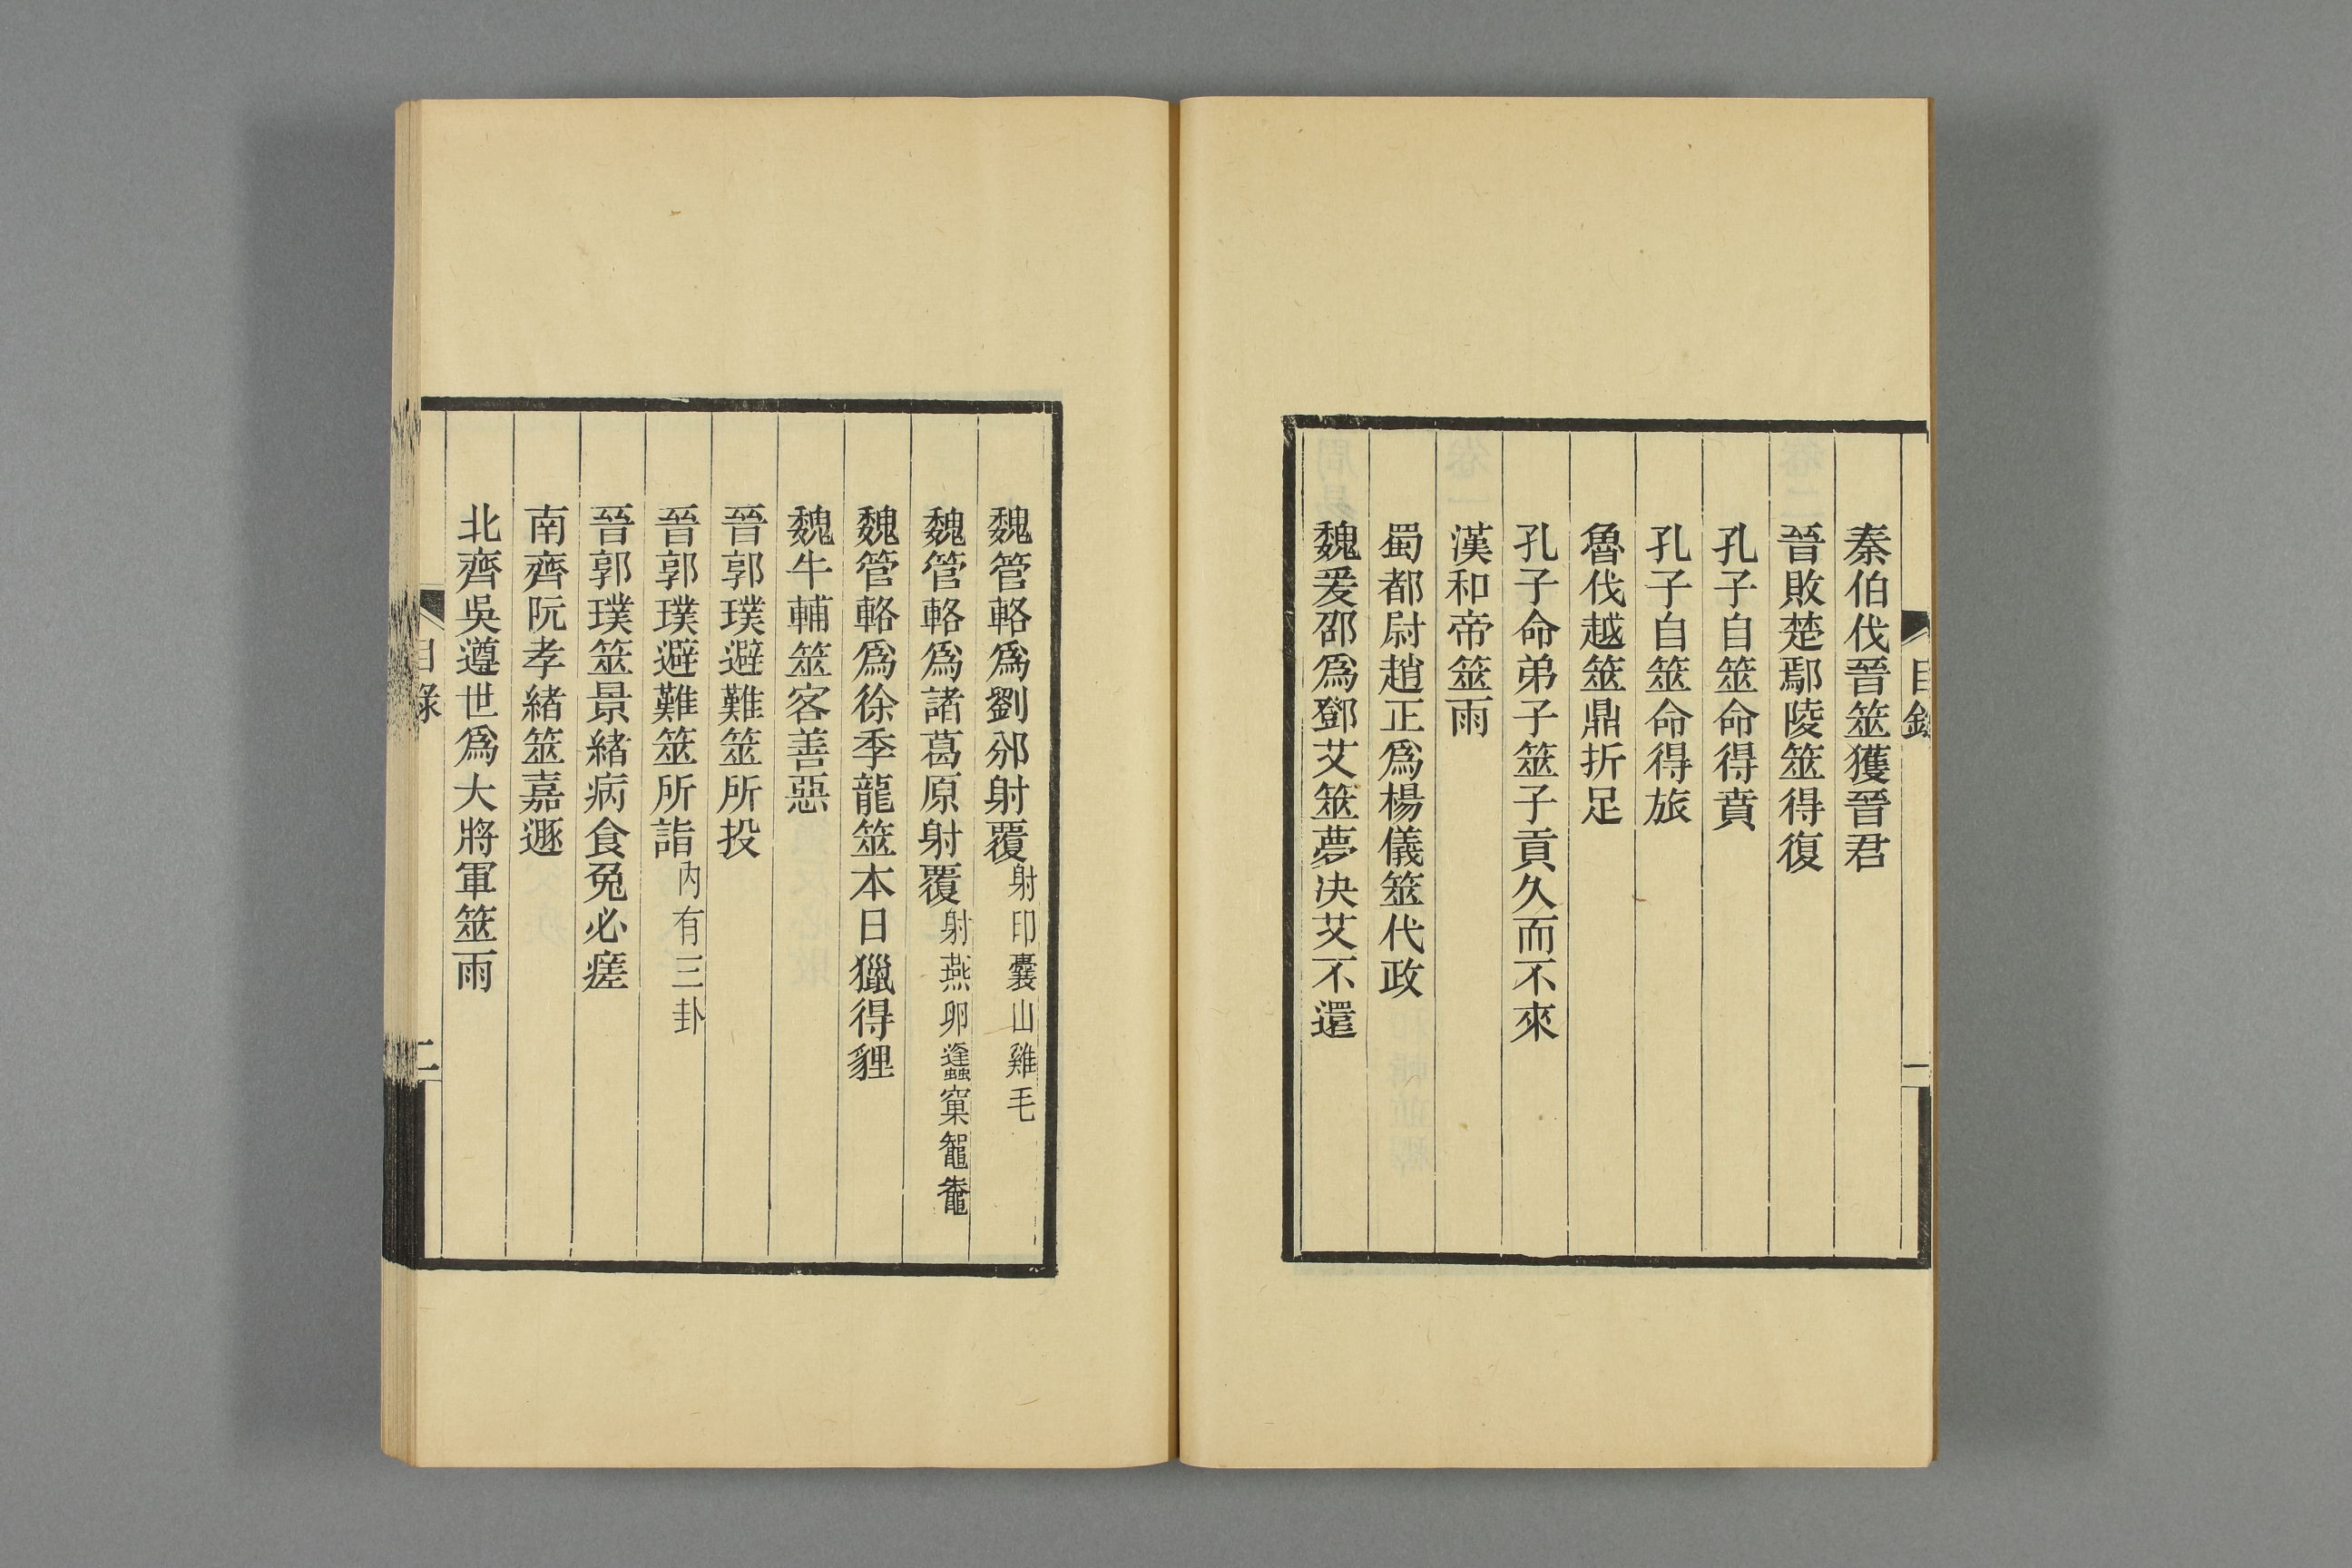 目錄
一
秦伯伐晉筮獲晉君
晉敗楚鄢陵筮得復
孔子自筮命得賁
孔子自筮命得旅
魯伐越筮鼎折足
孔子命弟子筮子貢久而不來
漢和帝筮雨
蜀都尉趙正爲楊儀筮代政
魏爰邵爲鄧艾筮夢决艾不還
魏管輅爲劉邠射覆射印囊山雞毛
魏管輅爲諸葛原射覆射燕卵蠭窠鼅鼄
魏管輅爲徐季龍筮本日獵得貍
魏牛輔筮客善惡
晉郭璞避難筮所投
晉郭璞避難筮所詣內有三卦
晉郭璞筮景緒病食兔必瘥
南齊阮孝緒筮嘉遯
北齊吳遵世爲大將軍筮雨
目錄
二